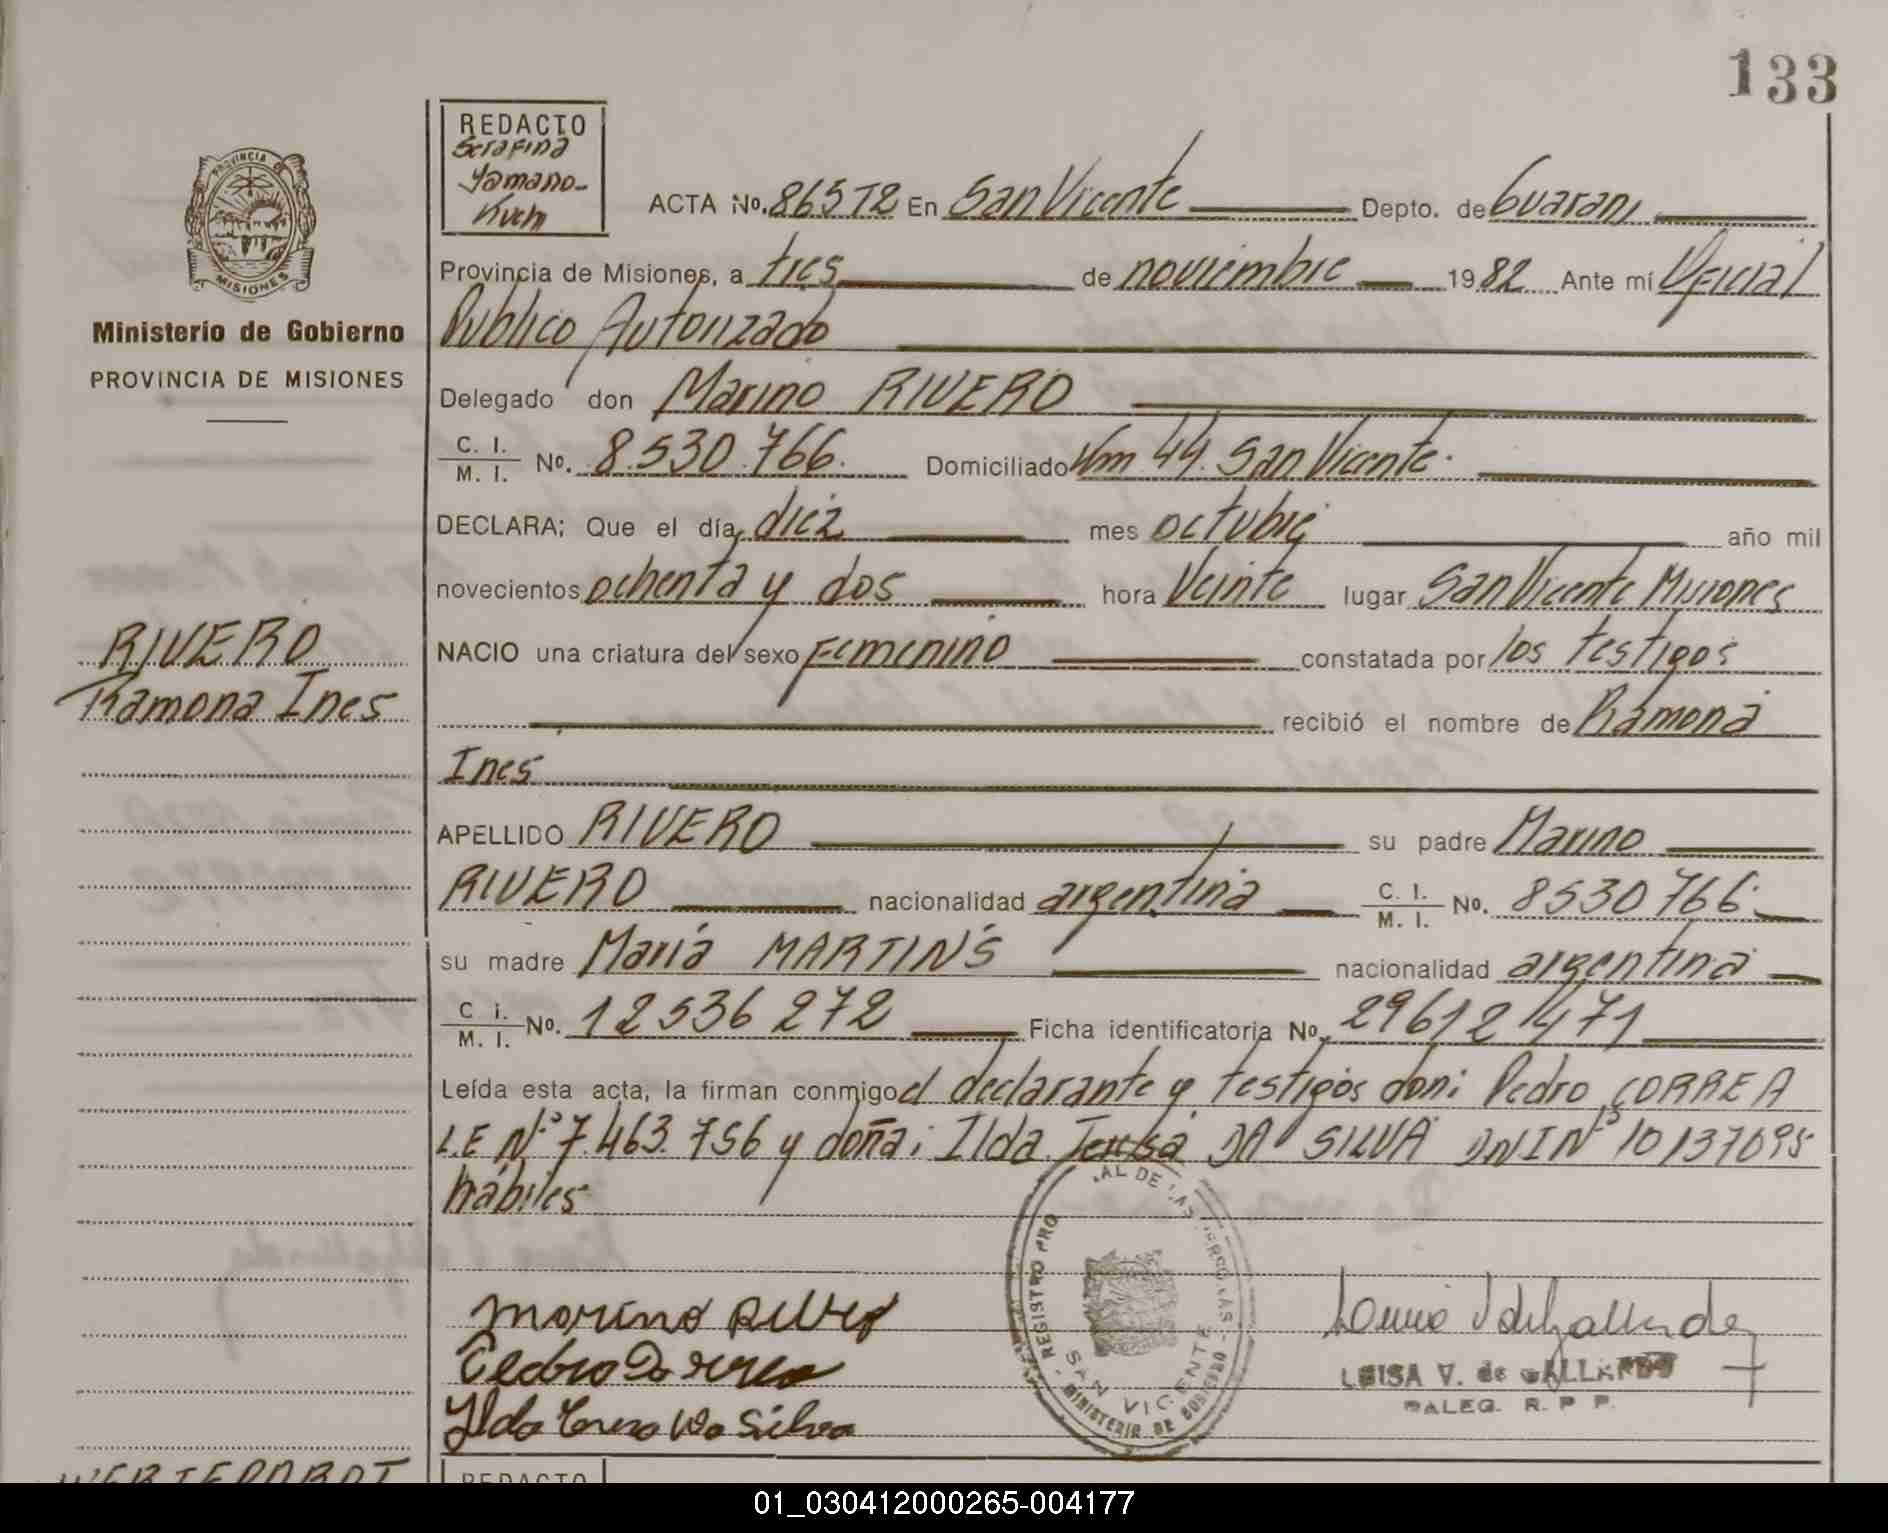 133
REDACTO
Serafina
Yamano-
Kuchi
PROVINCIA DE
MISIONES
Ministerio de Gobierno
PROVINCIA DE MISIONES
ACTA No. 86572 En San Vicente Depto. de Guarani
Provincia de Misiones, a tres de noviembre 1982 Ante mí Oficial
Publico Autorizado
Delegado don Marino RIVERO
C. I. / M. I. No. 8.530.766. Domiciliado Km 44. San Vicente.
DECLARA; Que el día, diez mes octubre año mil
novecientos ochenta y dos hora Veinte lugar San Vicente Misiones
NACIO una criatura del sexo Femenino constatada por los testigos
RIVERO
Ramona Ines
recibió el nombre de Ramona
Ines
APELLIDO RIVERO su padre Marino
RIVERO nacionalidad argentina C. I. / M. I. No. 8530766.
su madre María MARTINS nacionalidad argentina
C. i. / M. I. No. 12536272 Ficha identificatoria No. 29612471
Leída esta acta, la firman conmigo el declarante y testigos don: Pedro CORREA
L.E Nº 7.463.756 y doña: Ilda Teresa DA SILVA DNI Nº 10137095
hábiles
Marino Rivero
Pedro Correa
Ilda Teresa Da Silva
REGISTRO PRO AL DE LAS PERSONAS
SAN VICENTE
MINISTERIO DE GOBIERNO
LUISA V. de GALLARDO
DALEG. R. P. P.
REDACTO
01_030412000265-004177